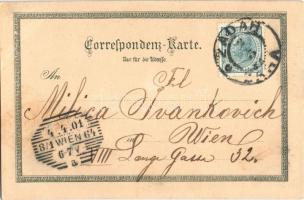 Correspondenz-Karte.
Nur für die Adresse.
An
Fl
Milica Ivankovich
Wien
VIII Lange Gasse 32.
4.4.01
8/1 WIEN 64
6-7V
a
ZARA